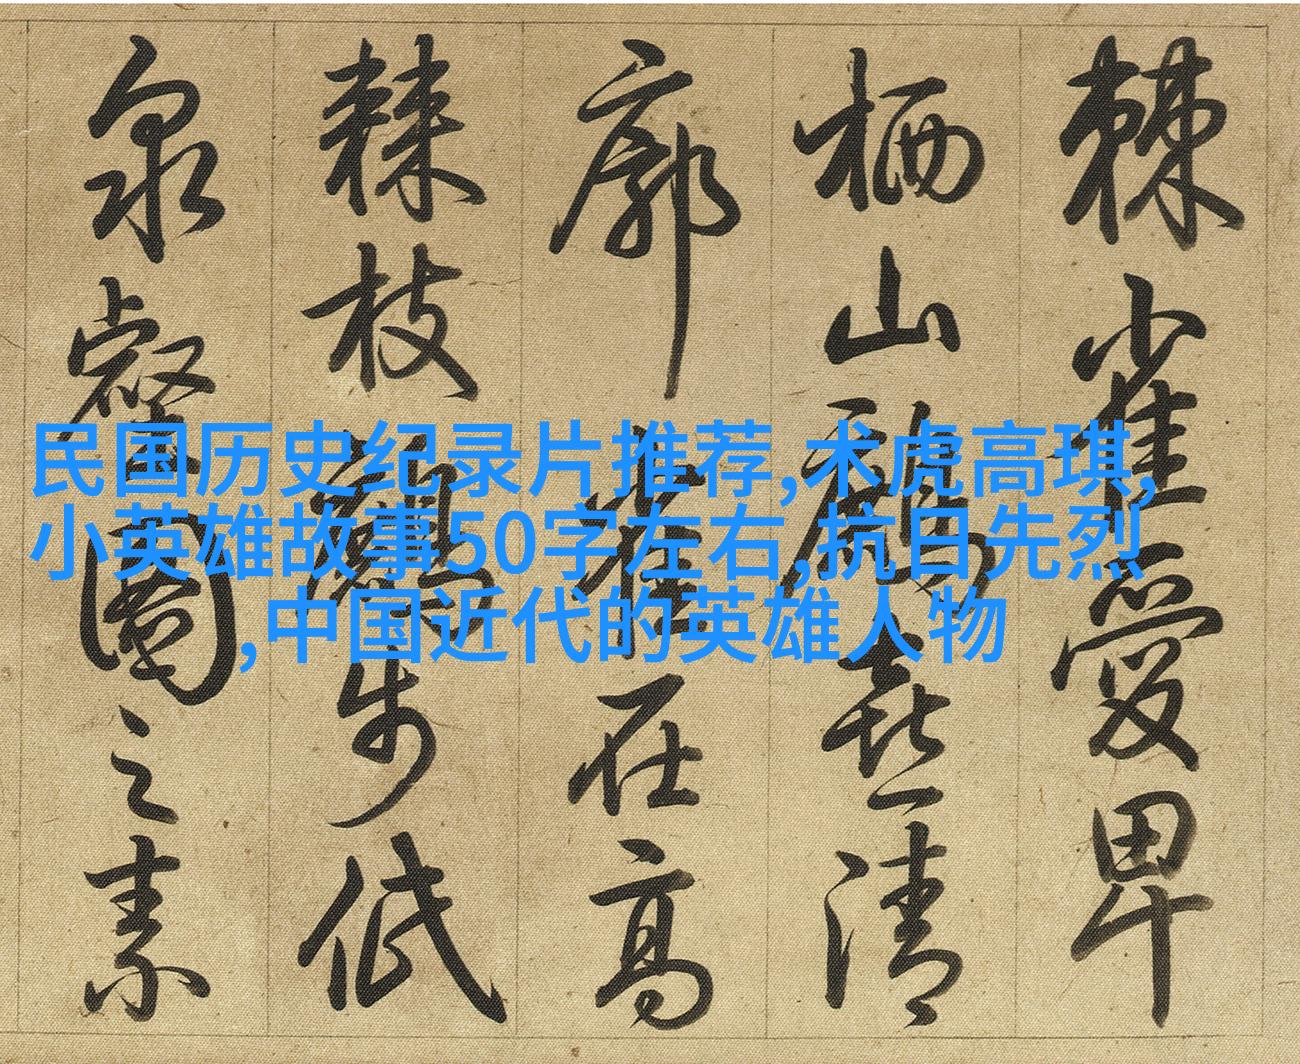 民国历史纪录片推荐,术虎高琪,
小英雄故事50字左右,抗日先烈
,中国近代的英雄人物
棘雀愛卑
栖山喜清
廓在高
棘枝步低
泉壑之素